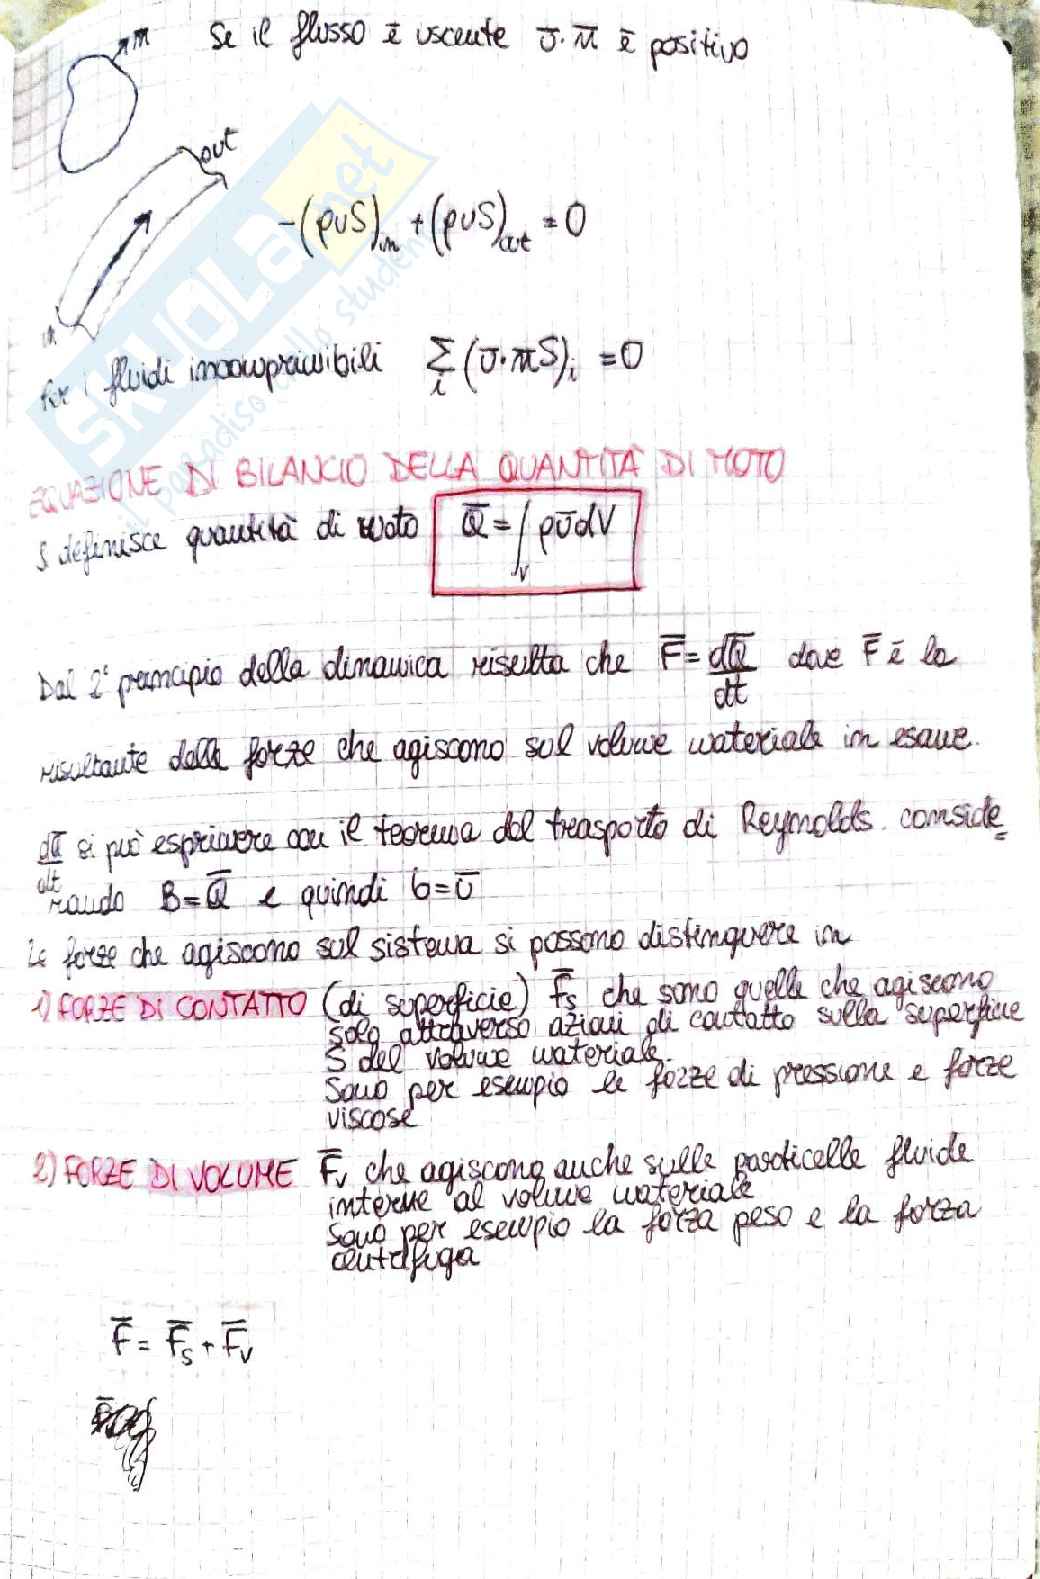 n
Se il flusso è uscente ῡ·n̄ è positivo
out
-(ρυS)in + (ρυS)out = 0
in
Per i fluidi incomprimibili Σi (ῡ·n̄S)i = 0
EQUAZIONE DI BILANCIO DELLA QUANTITÀ DI MOTO
Si definisce quantità di moto Q̄ = ∫V ρῡdV
Dal 2° principio della dinamica risulta che F̄ = dQ̄/dt dove F̄ è la
risultante delle forze che agiscono sul volume materiale in esame.
dQ̄/dt si può esprimere con il teorema del trasporto di Reynolds conside
rando B=Q̄ e quindi b=ῡ
Le forze che agiscono sul sistema si possono distinguere in
1) FORZE DI CONTATTO (di superficie) F̄s che sono quelle che agiscono
solo attraverso azioni di contatto sulla superficie
S del volume materiale.
Sono per esempio le forze di pressione e forze
viscose
2) FORZE DI VOLUME F̄v che agiscono anche sulle particelle fluide
interne al volume materiale
Sono per esempio la forza peso e la forza
centrifuga
F̄ = F̄s + F̄v
SKUOLA.net
il paradiso dello studente